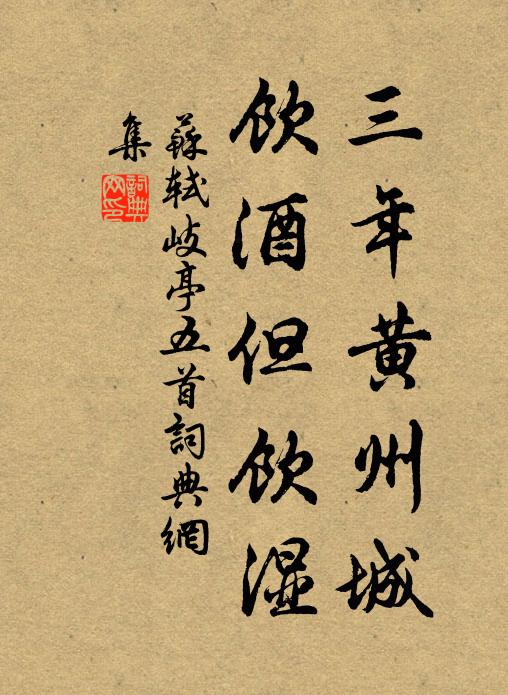 三年黄州城
饮酒但饮湿
蘇軾岐亭五首詞典網
集
詞典網印